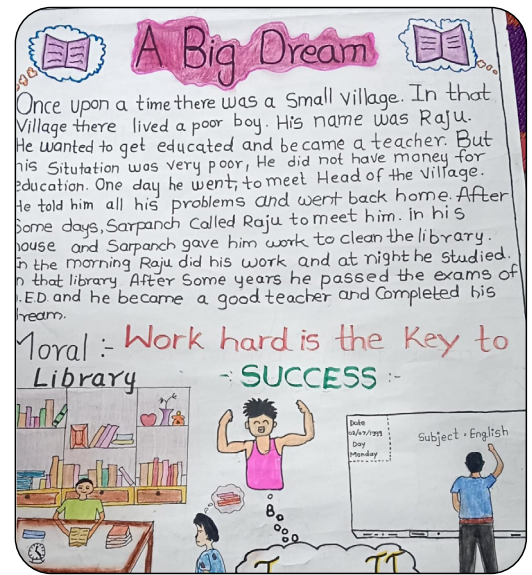 A Big Dream
Once upon a time there was a Small Village. In that
Village there lived a poor boy. His name was Raju.
He wanted to get educated and became a teacher. But
his Situtation was very poor, He did not have money for
education. One day he went, to meet Head of the Village.
He told him all his problems and went back home. After
Some days, Sarpanch Called Raju to meet him. in his
house and Sarpanch gave him work to clean the library.
In the morning Raju did his work and at night he studied.
in that library. After Some years he passed the exams of
.E.D. and he became a good teacher and Completed his
dream.
Moral :- Work hard is the Key to
-: SUCCESS :-
Library
Date
Day
Monday
Subject · English